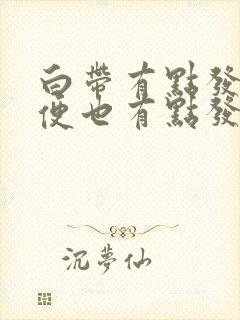 白帶有點發
便也有點發
沉夢仙